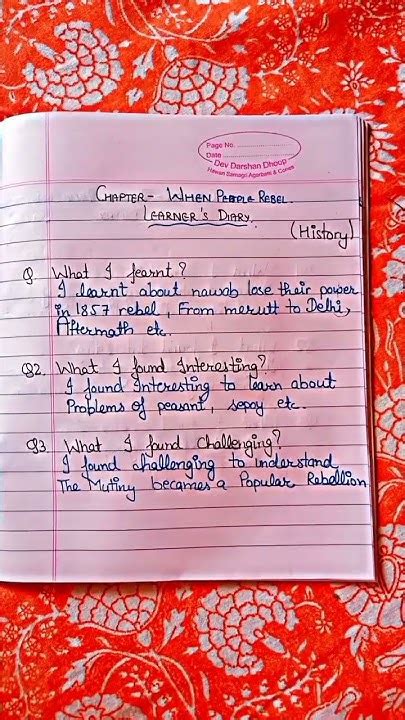 Page No. ........................
Date ........................
Dev Darshan Dhoop
Hawan Samagri Agarbatti & Cones
CHAPTER- WHEN PEOPLE REBEL.
LEARNER'S DIARY.
(History)
Q What I learnt?
I learnt about nawab lose their power
in 1857 rebel, From merutt to Delhi,
Aftermath etc.
Q2. What I found Interesting?
I found Interesting to learn about
Problems of peasant, sepoy etc.
Q3. What I found challenging?
I found challenging to understand
The Mutiny becames a Popular Rebellion